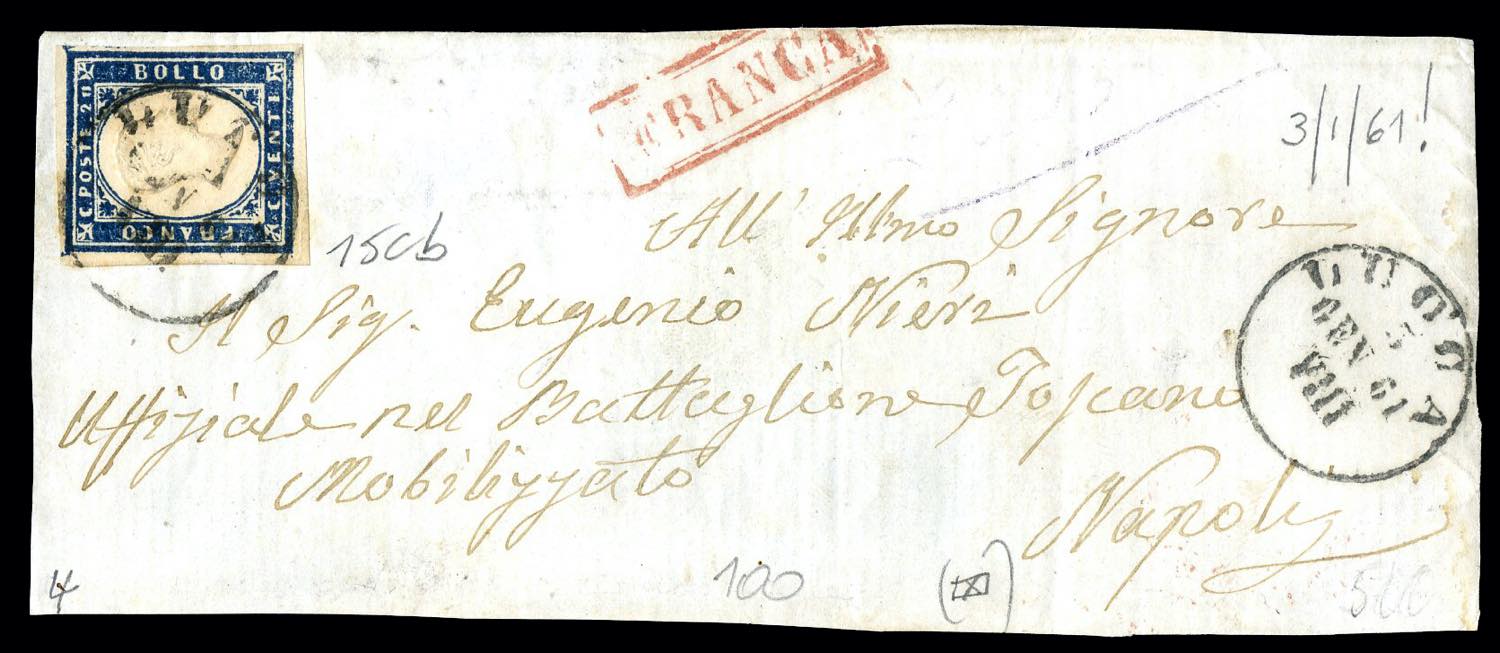 BOLLO
C. POSTE. 20
C. VENTI
FRANCO
FRANCA
3/1/61!
15Cb
All' Illmo Signore
Il Sig. Eugenio Nieri
Uffiziale nel Battaglione Toscano
Mobilizzato
Napoli
LUCCA
GEN 61
4
100